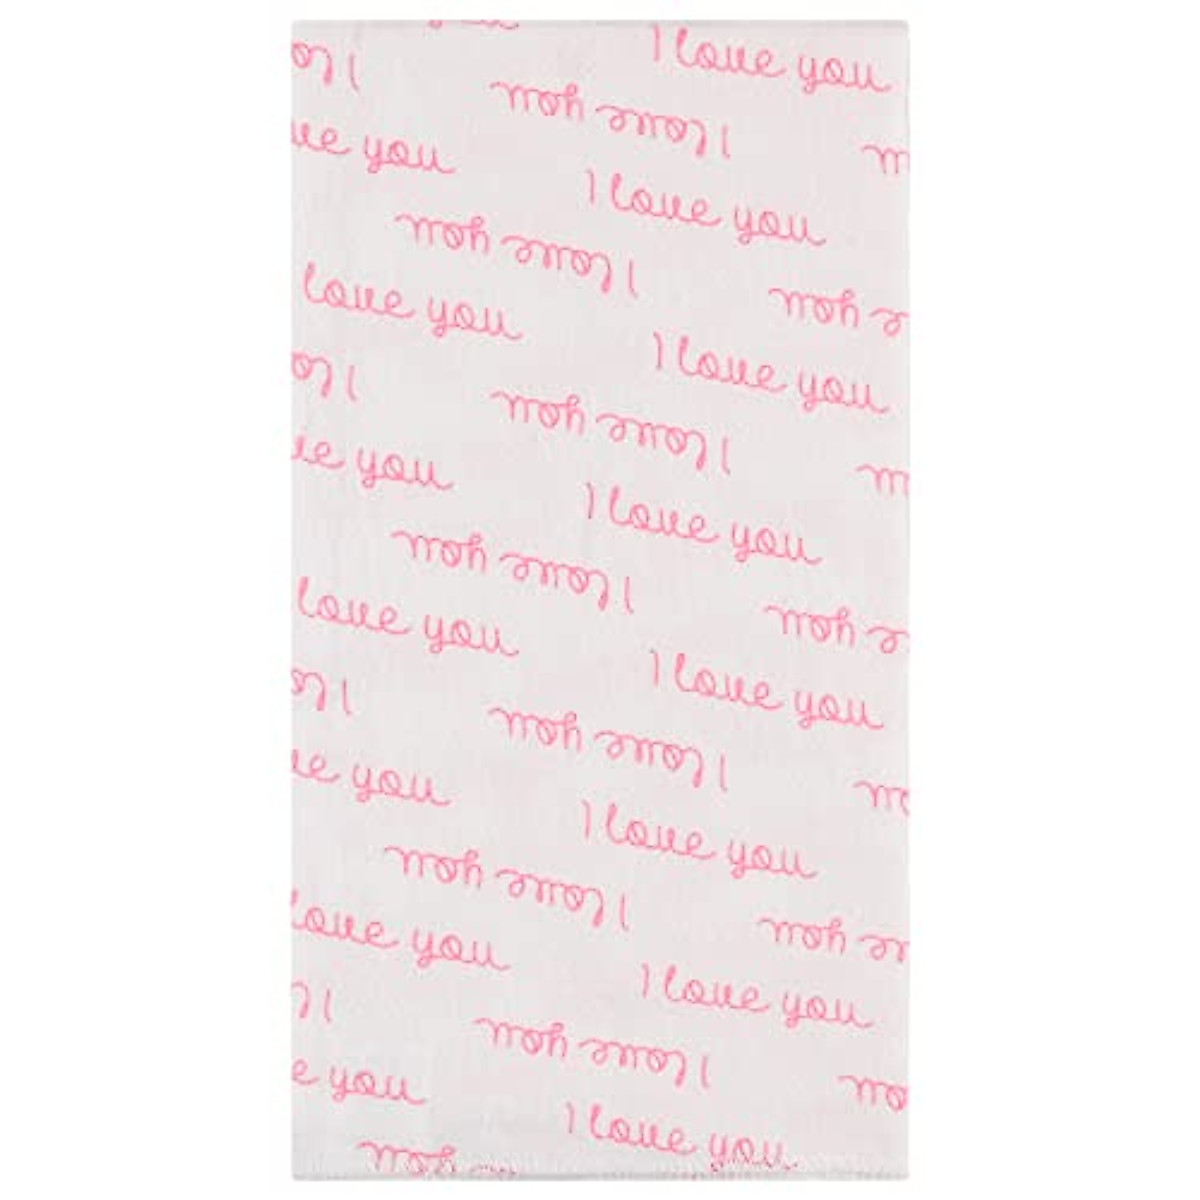 I love you
I lo
I love you
ve you
I love you
I love you
e you
love you
I love you
I lo
I love you
ve you
I love you
I love you
e you
love you
I love you
I lo
I love you
ve you
I love you
I love you
e you
love you
I love you
I l
I love you
ou
e you
I love you